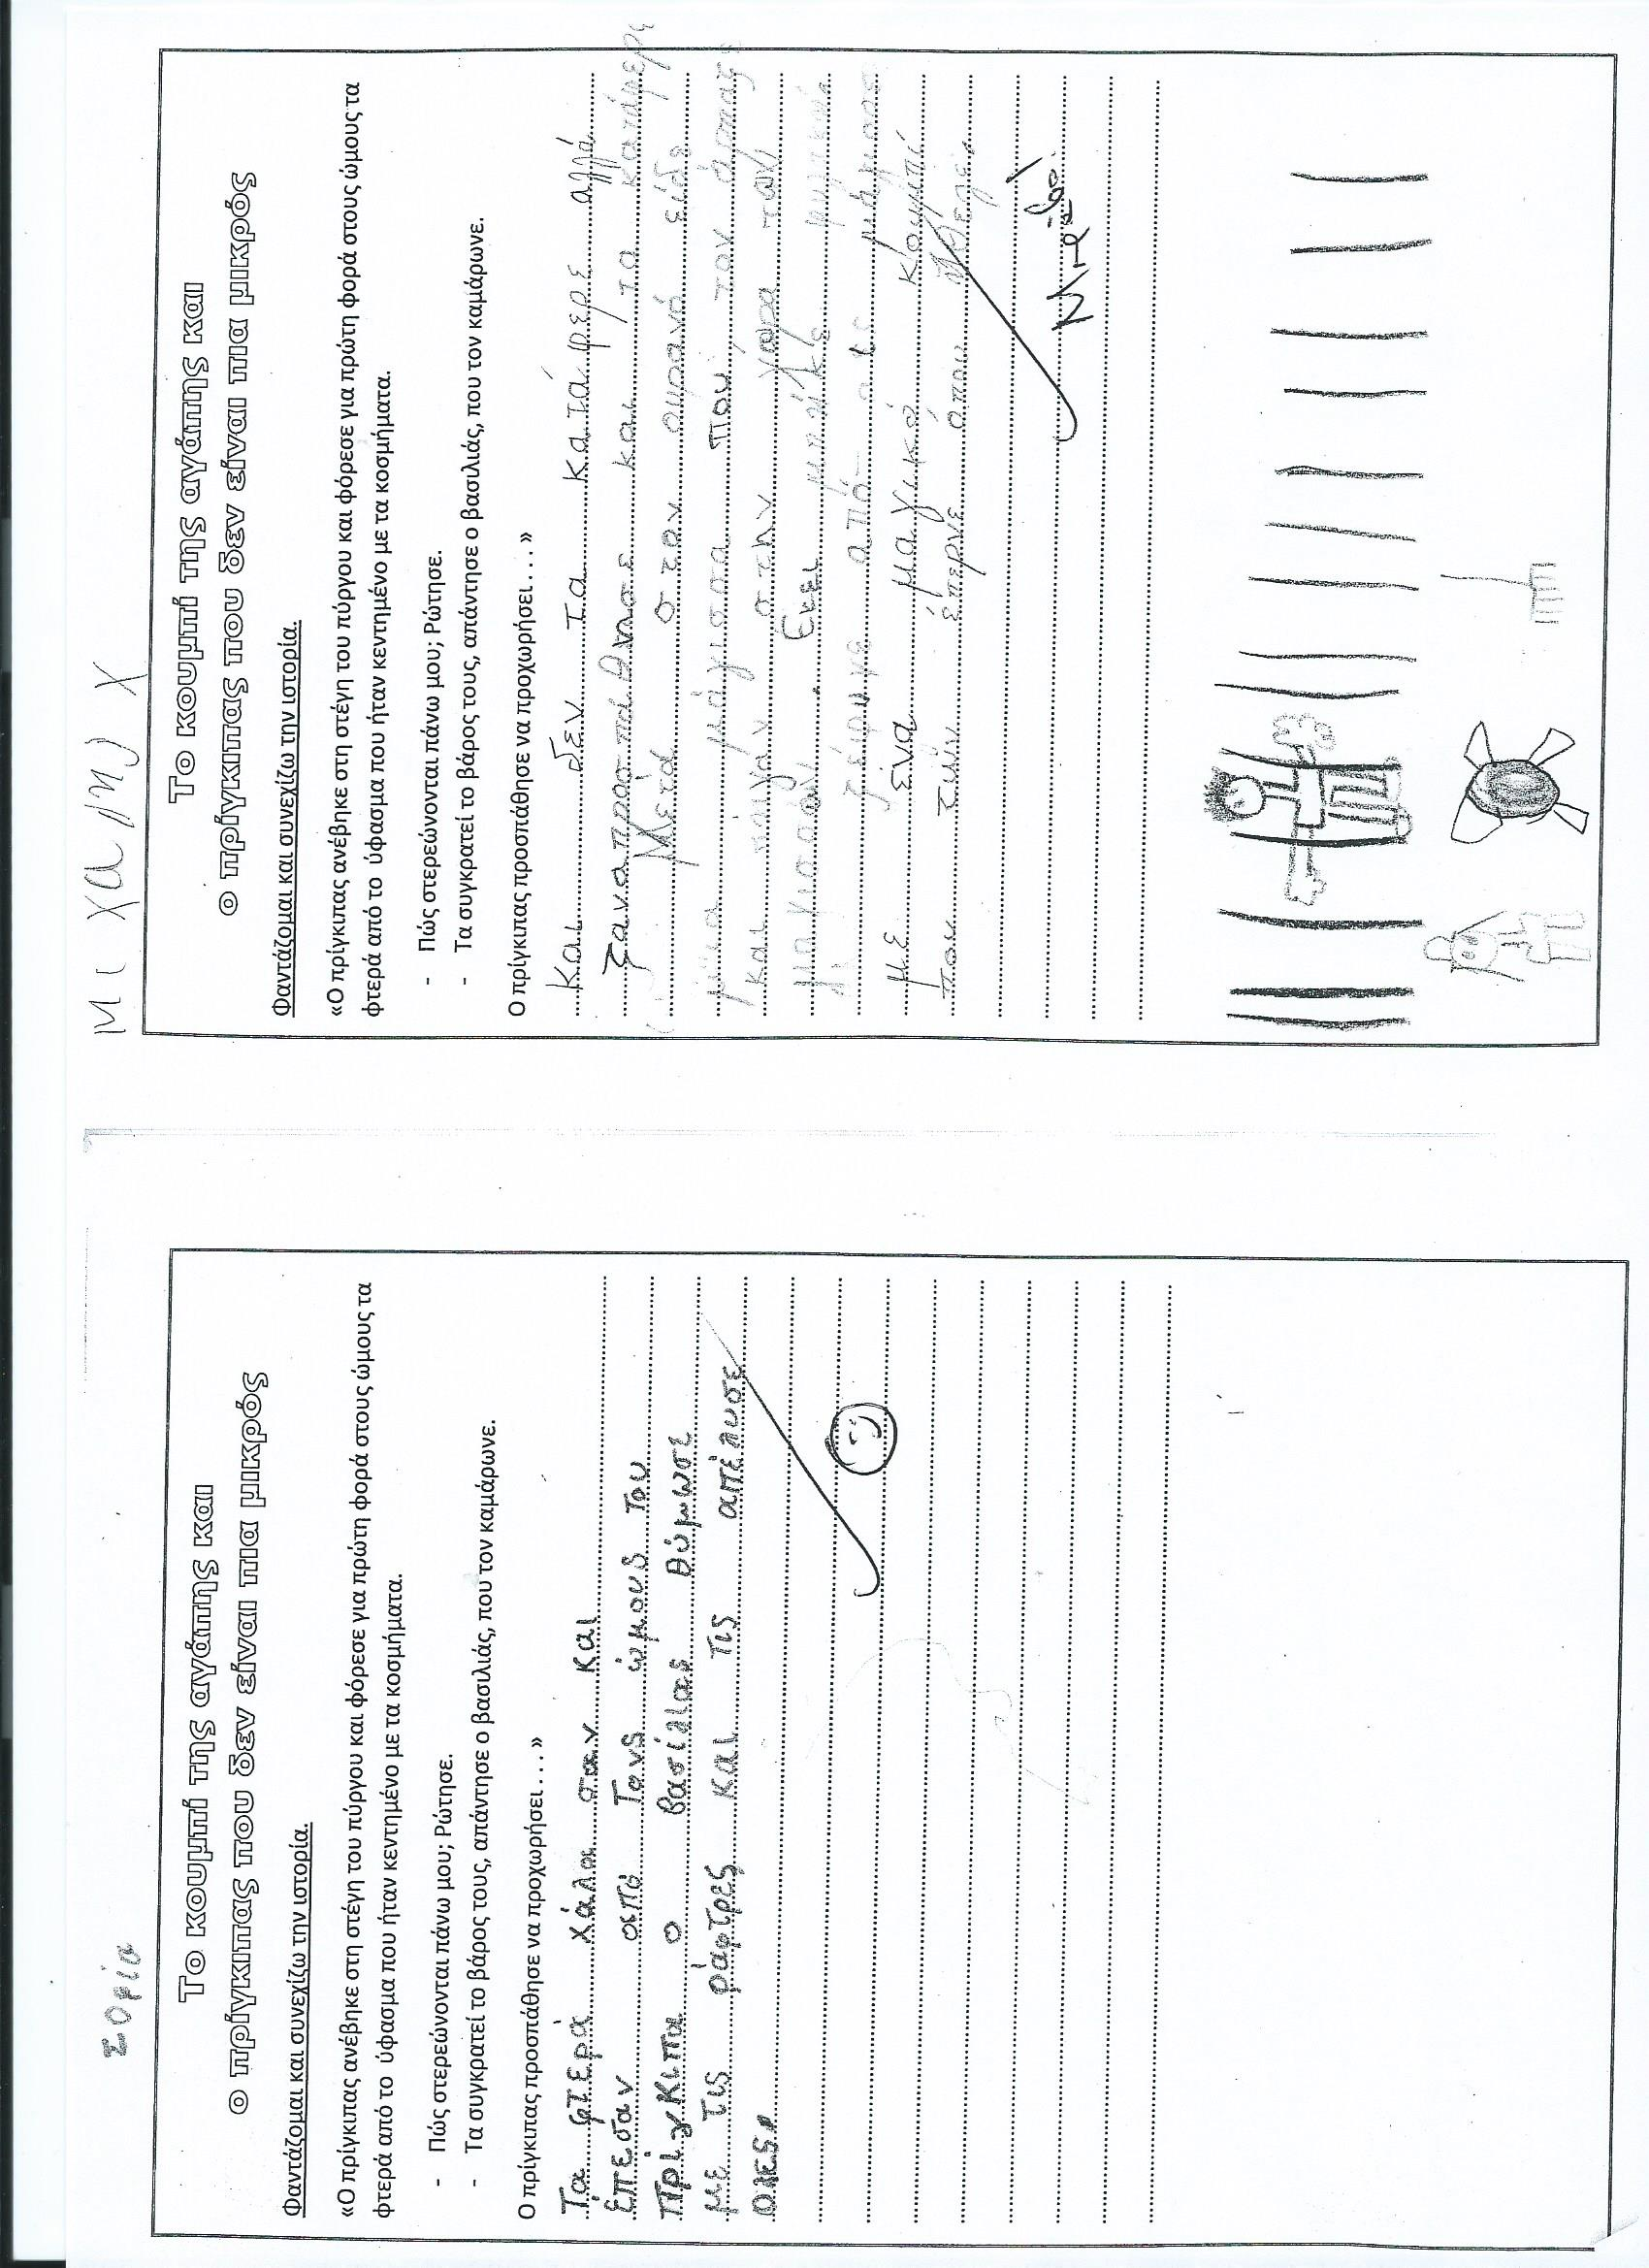 Σοφία
Το κουμπί της αγάπης και
ο πρίγκιπας που δεν είναι πια μικρός
Φαντάζομαι και συνεχίζω την ιστορία.
«Ο πρίγκιπας ανέβηκε στη στέγη του πύργου και φόρεσε για πρώτη φορά στους ώμους τα
φτερά από το ύφασμα που ήταν κεντημένο με τα κοσμήματα.
- Πώς στερεώνονται πάνω μου; Ρώτησε.
- Τα συγκρατεί το βάρος τους, απάντησε ο βασιλιάς, που τον καμάρωνε.
Ο πρίγκιπας προσπάθησε να προχωρήσει. . .»
Τα φτερά χάλα σαν και
έπεσαν από τους ώμους του
πρίγκιπα ο βασίλιας θύμωσε
με τις ράφτρες και τις απέλυσε
όλες.
Μιχαήλ Χ
Το κουμπί της αγάπης και
ο πρίγκιπας που δεν είναι πια μικρός
Φαντάζομαι και συνεχίζω την ιστορία.
«Ο πρίγκιπας ανέβηκε στη στέγη του πύργου και φόρεσε για πρώτη φορά στους ώμους τα
φτερά από το ύφασμα που ήταν κεντημένο με τα κοσμήματα.
- Πώς στερεώνονται πάνω μου; Ρώτησε.
- Τα συγκρατεί το βάρος τους, απάντησε ο βασιλιάς, που τον καμάρωνε.
Ο πρίγκιπας προσπάθησε να προχωρήσει. . .»
και δεν τα κατάφερε αλλά
ξαναπροσπάθησε και τα κατάφερε
Μετά στον ουρανό είδε
μια μάγισσα που τον άρπαξε
και πήγαν στην χώρα των
μαγισσών. Εκεί μπήκε φυλακή
από
με ένα μαγικό κουμπί
που τον έπερνε όπου ήθελε.
Μπράβο!